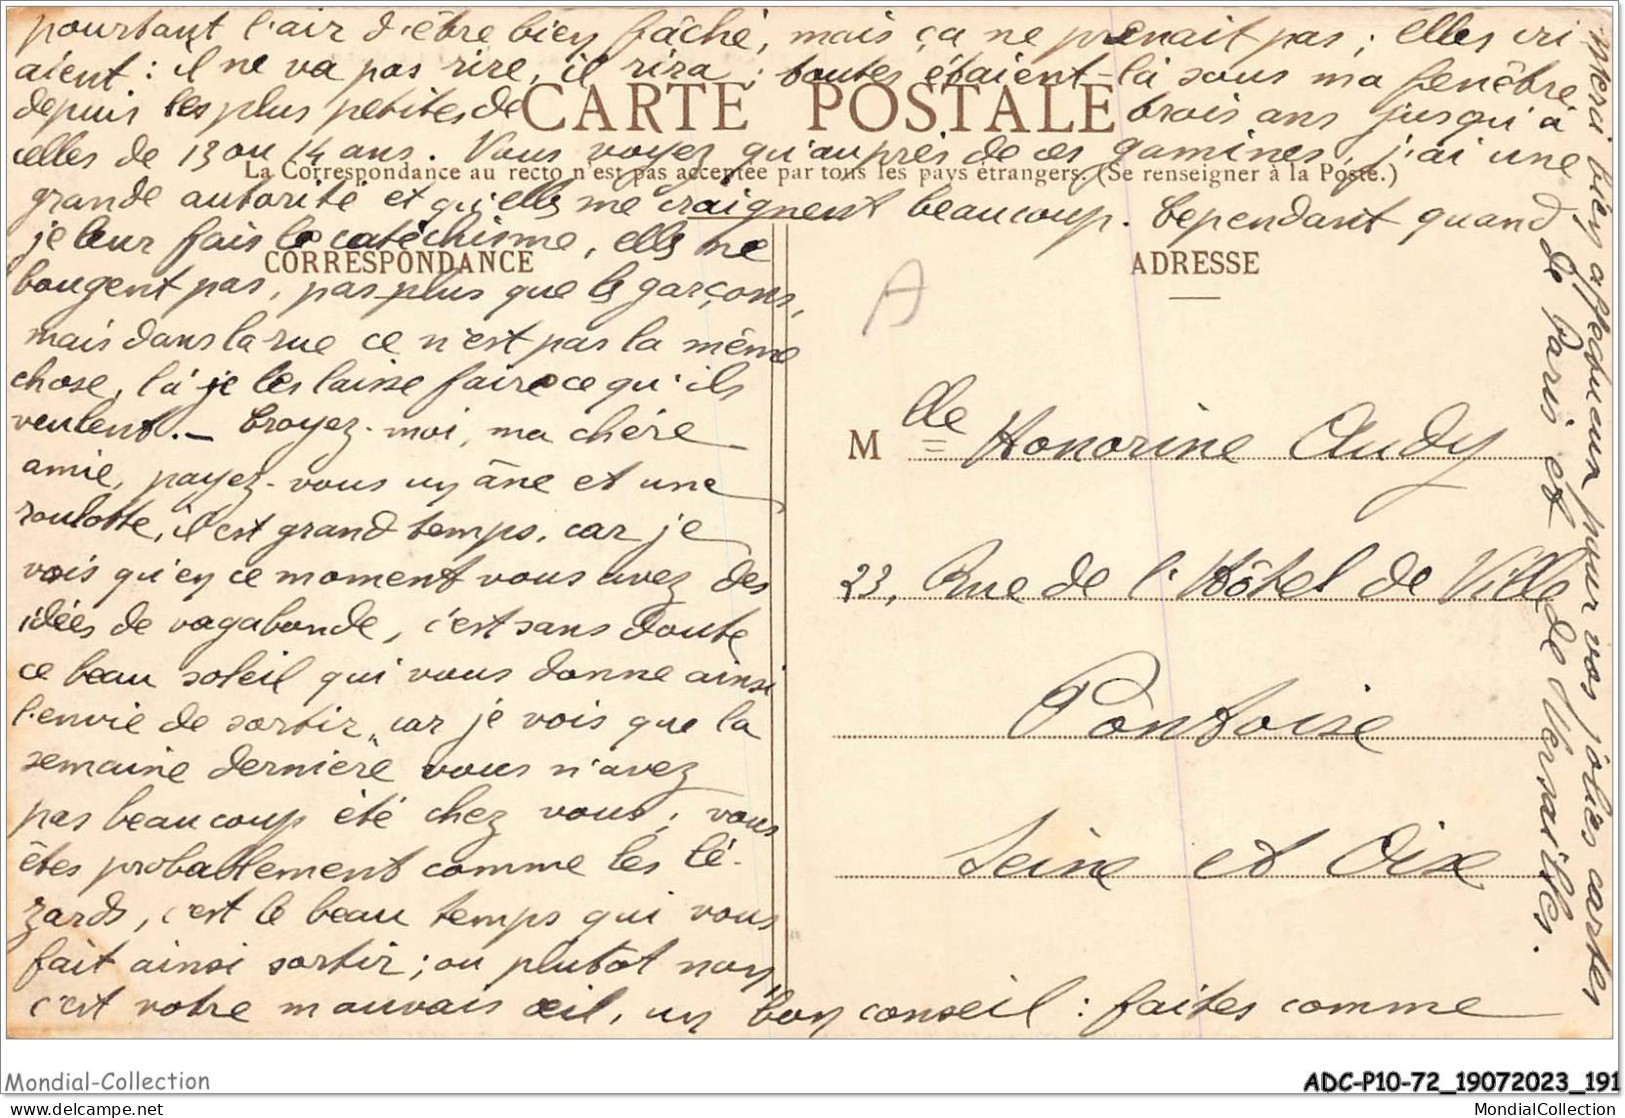 pourtant l'air d'être bien fâché, mais ça ne prenait pas; elles cri
aient: il ne va pas rire, il rira; toutes étaient là sous ma fenêtre
depuis les plus petites de trois ans jusqu'à
CARTE POSTALE
celles de 13 ou 14 ans. Vous voyez qu'auprès de ces gamines, j'ai une
La Correspondance au recto n'est pas acceptée par tous les pays étrangers. (Se renseigner à la Poste.)
grande autorité et qu'elles me craignent beaucoup. Cependant quand
je leur fais le catéchisme, elles ne
CORRESPONDANCE
bougent pas, pas plus que les garçons,
mais dans la rue ce n'est pas la même
chose, là je les laisse faire ce qu'ils
veulent. – Croyez-moi, ma chère
amie, payez-vous un âne et une
roulotte, il est grand temps, car je
vois qu'en ce moment vous avez des
idées de vagabonde, c'est sans doute
ce beau soleil qui vous donne ainsi
l'envie de sortir, car je vois que la
semaine dernière vous n'avez
pas beaucoup été chez vous; vous
êtes probablement comme les lé-
zards, c'est le beau temps qui vous
fait ainsi sortir; ou plutôt non
c'est votre mauvais œil, un bon conseil: faites comme
ADRESSE
A
Mlle Honorine Audy
23, Rue de l'Hôtel de Ville
Pontoise
Seine et Oise
merci bien affectueux pour vos jolies cartes
de Paris et de Versailles.
Mondial-Collection
ADC-P10-72_19072023_191
delcampe.net
MondialCollection